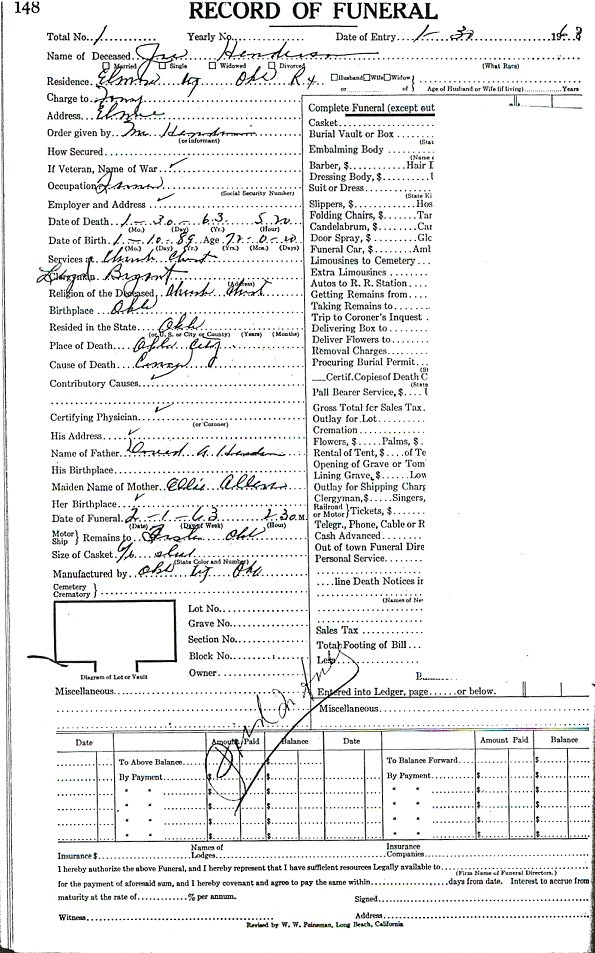 148
RECORD OF FUNERAL
Total No. 1 Yearly No. Date of Entry 1-30 1963
Name of Deceased Joe Henderson
Married Single Widowed Divorced (What Race)
Residence Elmore Okl R Husband Wife Widow or of Age of Husband or Wife (if living) Years
Charge to
Address Elmore
Order given by Mrs Henderson
(or informant)
How Secured
If Veteran, Name of War
Occupation Farmer
(Social Security Number)
Employer and Address
Date of Death 1-30-63
(Mo.) (Day) (Yr.) (Hour)
Date of Birth 1-10-89 Age
(Mo.) (Day) (Yr.) (Yrs.) (Mo.) (Days)
Services at Church Christ
(Address)
Clergyman Bryant
Religion of the Deceased Church Christ
Birthplace Okl
Resided in the State Okl
(or U. S. or City or County) (Years) (Months)
Place of Death Okla City
Cause of Death
Contributory Causes
Certifying Physician
(or Coroner)
His Address
Name of Father
His Birthplace
Maiden Name of Mother Ellis Allen
Her Birthplace
Date of Funeral 2-1-63 2 30 M.
(Date) (Day of Week) (Hour)
Motor Ship Remains to Okl
Size of Casket 6/6
(State Color and Number)
Manufactured by Okl Okl
Cemetery
Crematory
Diagram of Lot or Vault
Lot No.
Grave No.
Section No.
Block No.
Owner
Miscellaneous
Complete Funeral (except out
Casket
Burial Vault or Box
(Stat
Embalming Body
(Name o
Barber, $ Hair D
Dressing Body, $
Suit or Dress
(State Ki
Slippers, $ Hos
Folding Chairs, $ Tar
Candelabrum, $ Ca
Door Spray, $ Glo
Funeral Car, $ Aml
Limousines to Cemetery
Extra Limousines
Autos to R. R. Station
Getting Remains from
Taking Remains to
Trip to Coroner's Inquest
Delivering Box to
Deliver Flowers to
Removal Charges
Procuring Burial Permit
(St
Certif. Copies of Death C
(State
Pall Bearer Service, $
Gross Total for Sales Tax
Outlay for Lot
Cremation
Flowers, $ Palms, $
Rental of Tent, $ of Te
Opening of Grave or Tom
Lining Grave, $ Low
Outlay for Shipping Charg
Clergyman, $ Singers,
Railroad or Motor Tickets, $
Telegr., Phone, Cable or R
Cash Advanced
Out of town Funeral Dire
Personal Service
line Death Notices in
(Names of Ne
Sales Tax
Total Footing of Bill
Less
Entered into Ledger, page or below.
Miscellaneous
Date Amount Paid Balance Date Amount Paid Balance
To Above Balance $ $ To Balance Forward $ $
By Payment $ $ By Payment $ $
" " $ $ " " $ $
" " $ $ " " $ $
" " $ $ " " $ $
" " $ $ " " $ $
Insurance $ Names of Lodges Insurance Companies
I hereby authorize the above Funeral, and I hereby represent that I have sufficient resources Legally available to
(Firm Name of Funeral Directors.)
for the payment of aforesaid sum, and I hereby covenant and agree to pay the same within days from date. Interest to accrue from
maturity at the rate of % per annum. Signed
Witness Address
Revised by W. W. Prineman, Long Beach, California